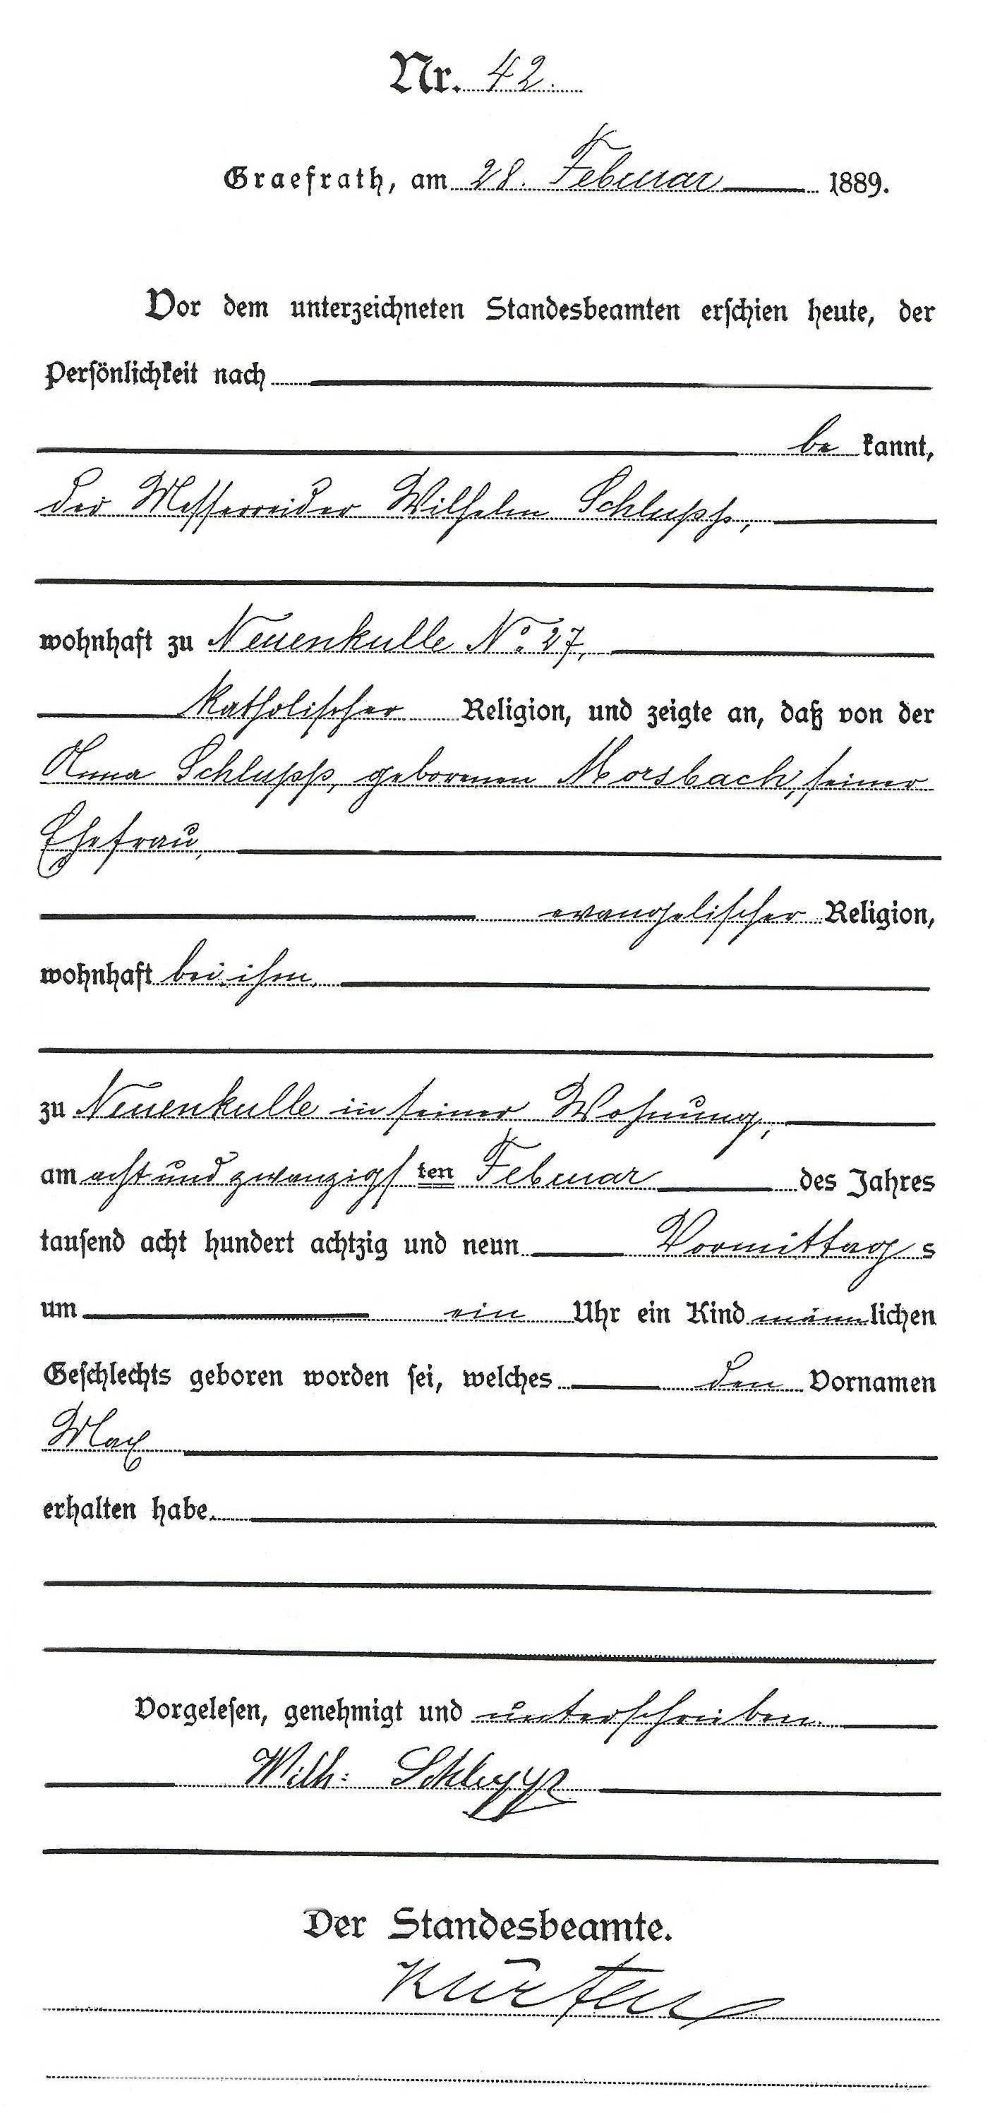 Nr. 42.
Graefrath, am 28. Februar 1889.
Vor dem unterzeichneten Standesbeamten erschien heute, der
Persönlichkeit nach
be kannt,
der Messerreider Wilhelm Schlupp,
wohnhaft zu Neuenkulle No. 27,
katholischer Religion, und zeigte an, daß von der
Anna Schlupp, geborenen Morsbach, seiner
Ehefrau,
evangelischer Religion,
wohnhaft bei ihm,
zu Neuenkulle in seiner Wohnung,
am acht und zwanzigs ten Februar des Jahres
tausend acht hundert achtzig und neun Vormittag s
um ein Uhr ein Kind männlichen
Geschlechts geboren worden sei, welches den Vornamen
Max
erhalten habe.
Vorgelesen, genehmigt und unterschrieben.
Wilh: Schlupp
Der Standesbeamte.
Kürten